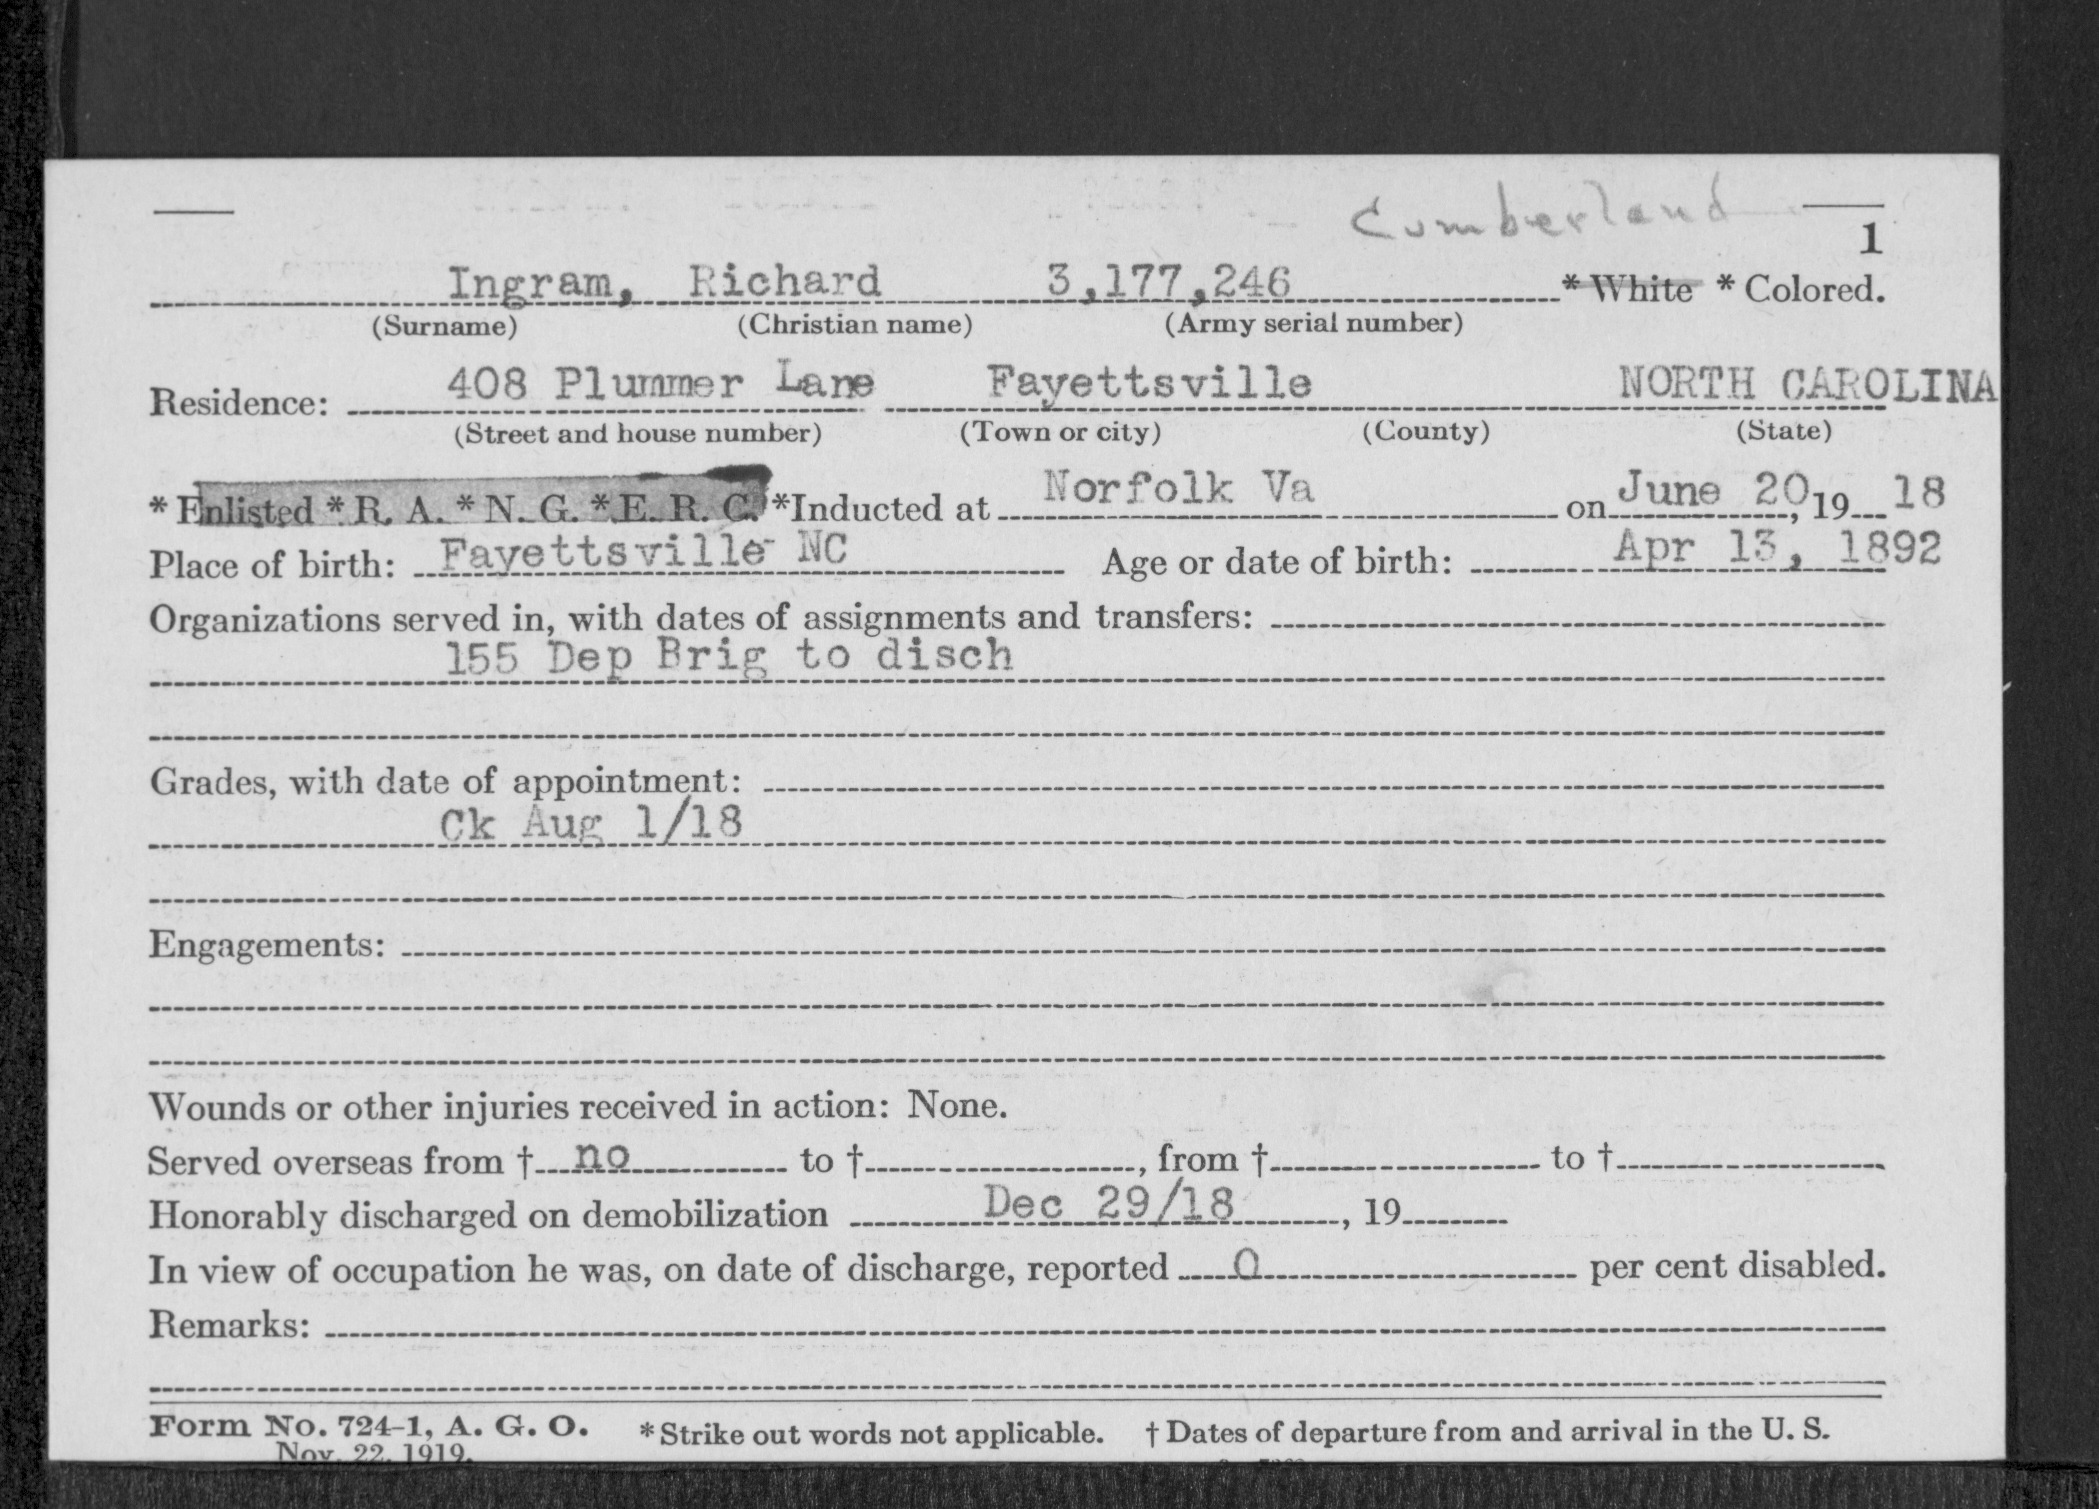 Cumberland
1
Ingram, Richard 3,177,246 * White * Colored.
(Surname) (Christian name) (Army serial number)
408 Plummer Lane Fayettsville NORTH CAROLINA
Residence:
(Street and house number) (Town or city) (County) (State)
* Enlisted * R. A. * N. G. * E. R. C. *Inducted at Norfolk Va on June 20, 19 18
Place of birth: Fayettsville NC Age or date of birth: Apr 13, 1892
Organizations served in, with dates of assignments and transfers:
155 Dep Brig to disch
Grades, with date of appointment:
Ck Aug 1/18
Engagements:
Wounds or other injuries received in action: None.
Served overseas from † no to †, from † to †
Honorably discharged on demobilization Dec 29/18, 19
In view of occupation he was, on date of discharge, reported 0 per cent disabled.
Remarks:
Form No. 724-1, A. G. O. * Strike out words not applicable. † Dates of departure from and arrival in the U. S.
Nov. 22, 1919.